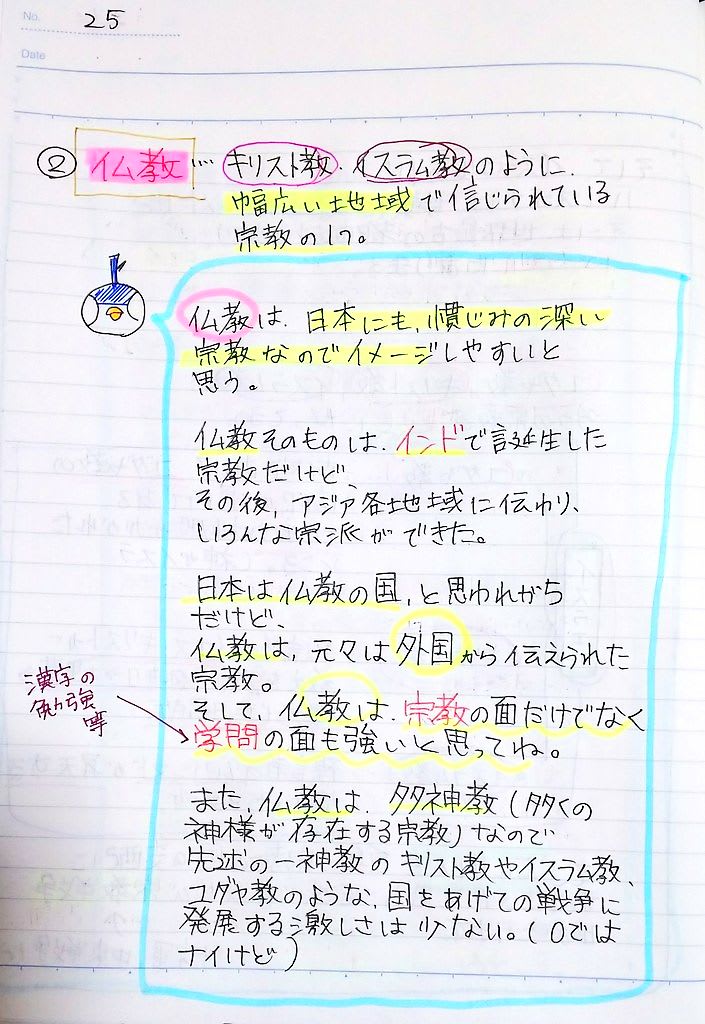 No. 25
Date
② 仏教 … キリスト教・イスラム教のように、
幅広い地域で信じられている
宗教の1つ。
仏教は、日本にも、慣じみの深い
宗教なのでイメージしやすいと
思う。
仏教そのものは、インドで誕生した
宗教だけど、
その後、アジア各地域に伝わり、
いろんな宗派ができた。
日本は仏教の国、と思われがち
だけど、
仏教は、元々は外国から伝えられた
宗教。
そして、仏教は、宗教の面だけでなく
学問の面も強いと思ってね。
漢字の
勉強
等
また、仏教は、多神教(多くの
神様が存在する宗教)なので
先述の一神教のキリスト教やイスラム教、
ユダヤ教のような、国をあげての戦争に
発展する激しさは少ない。(0では
ナイけど)